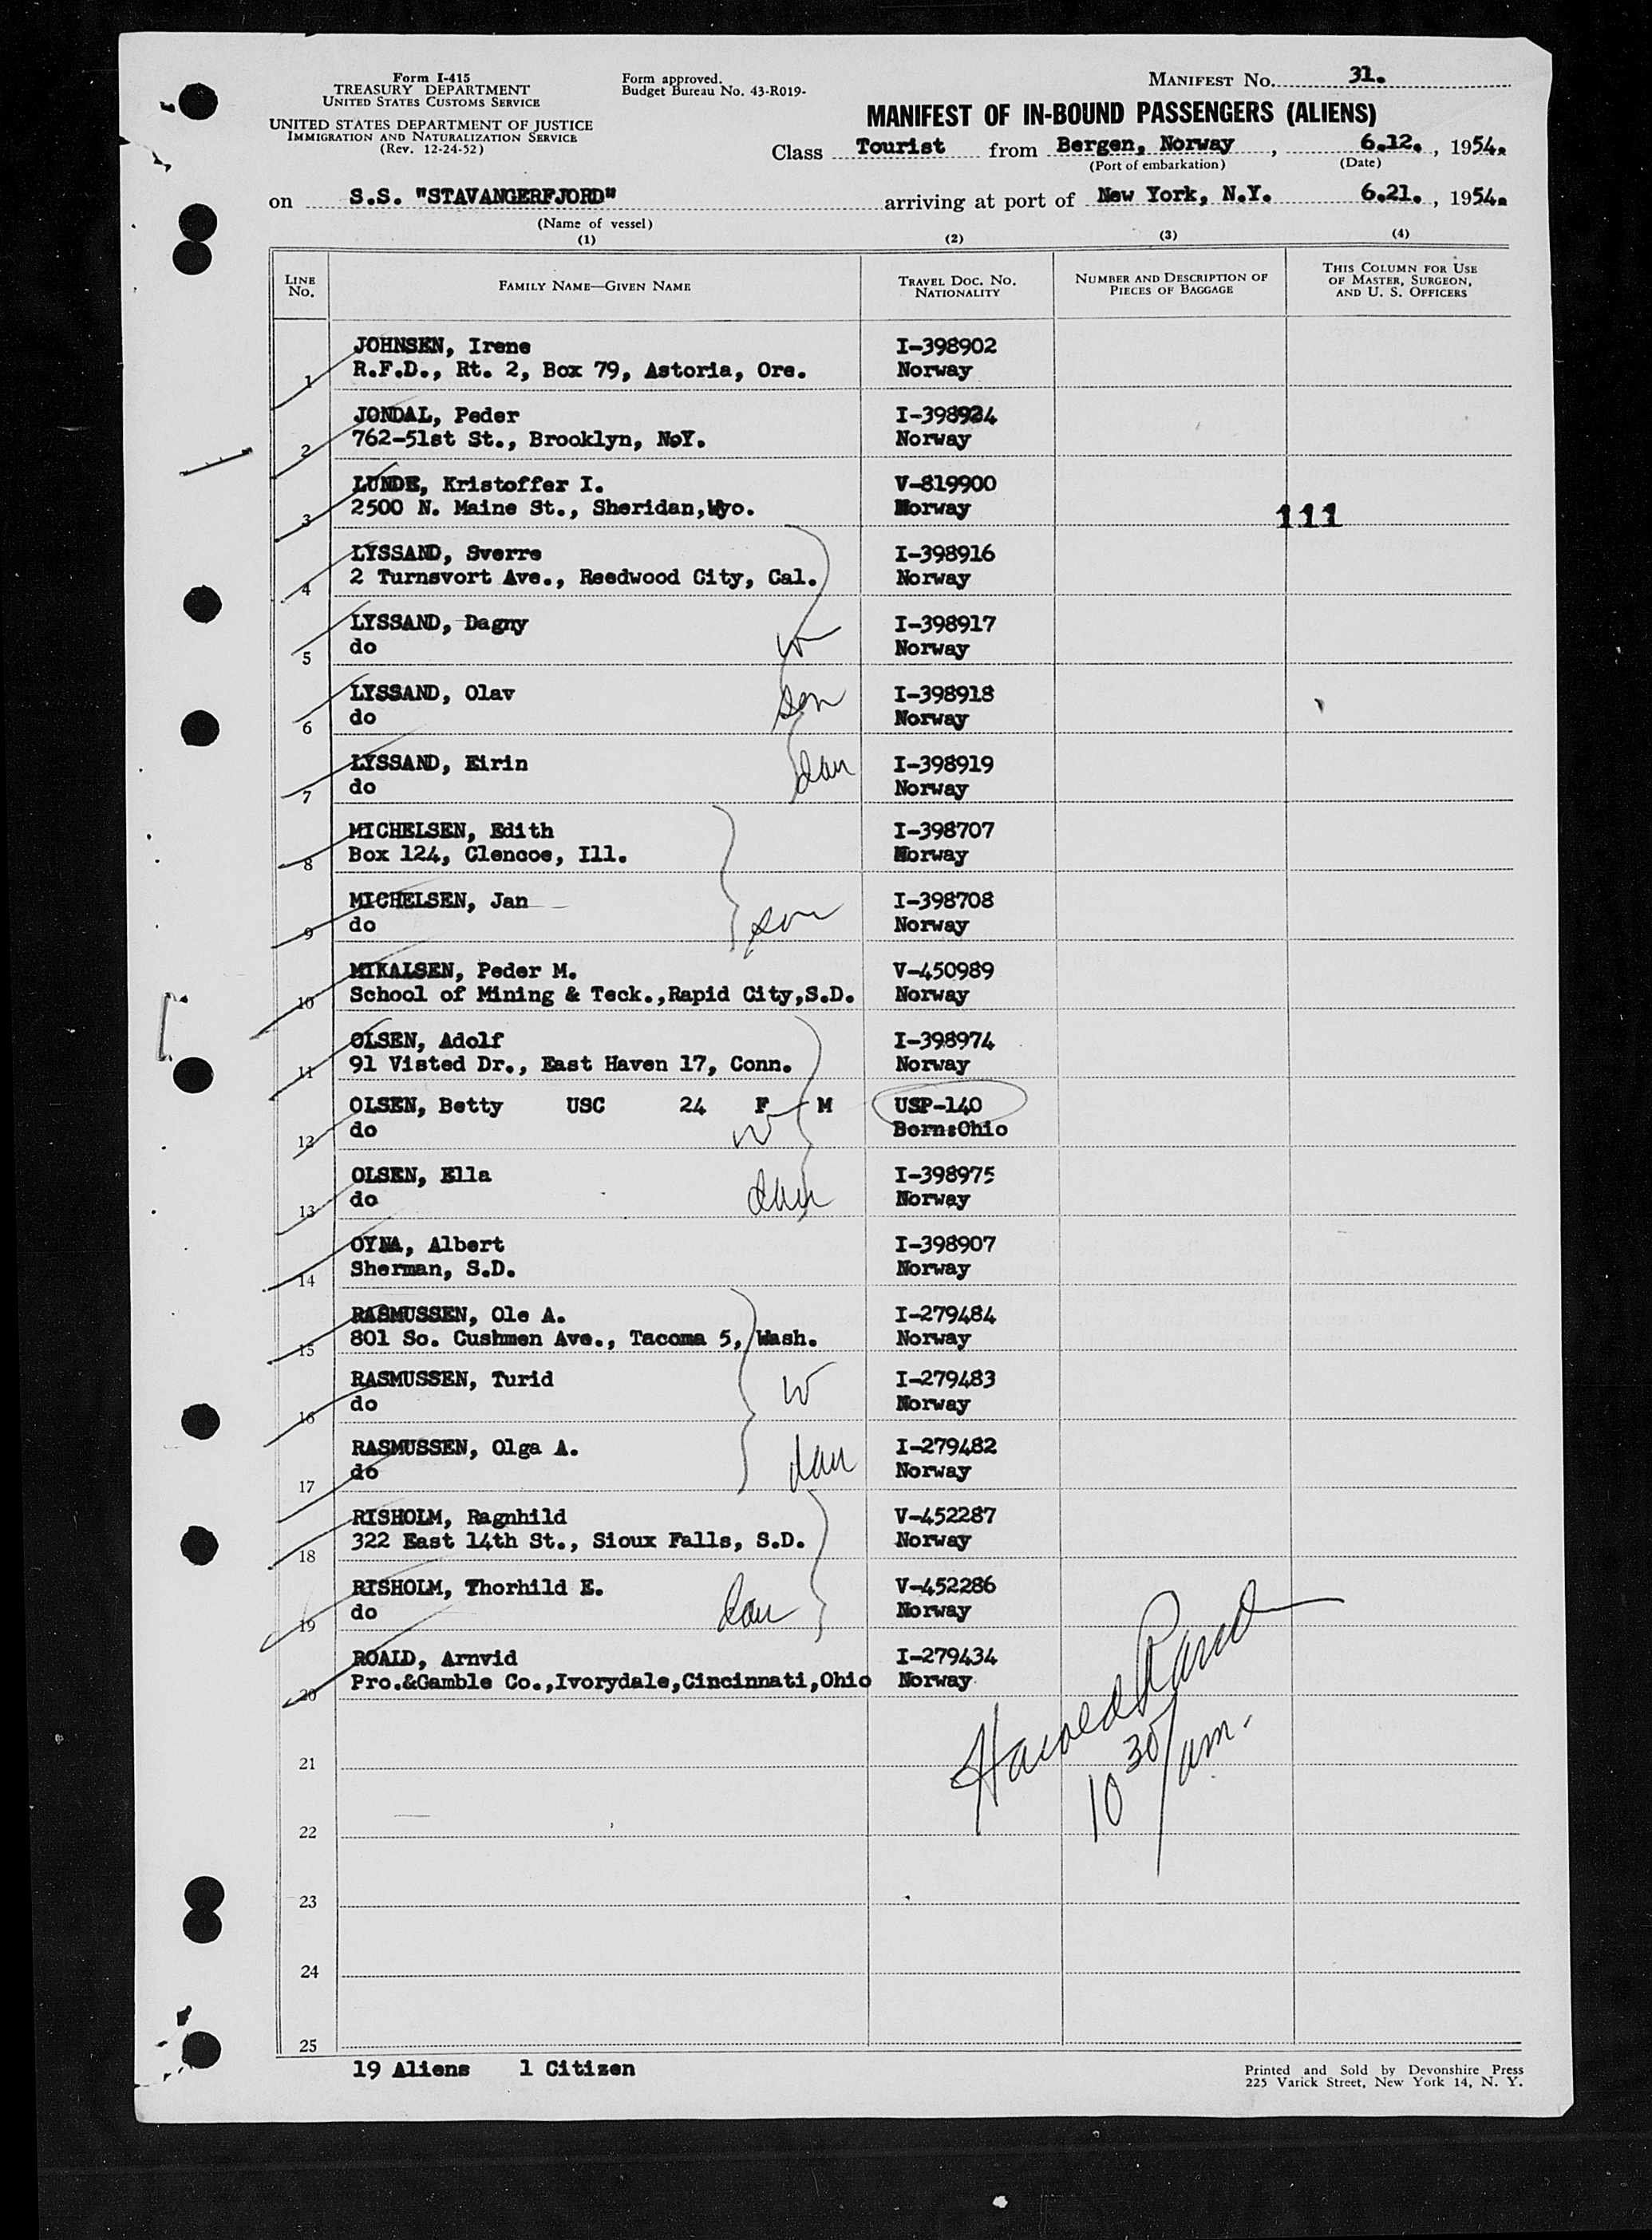 Form I-415
TREASURY DEPARTMENT
UNITED STATES CUSTOMS SERVICE
UNITED STATES DEPARTMENT OF JUSTICE
IMMIGRATION AND NATURALIZATION SERVICE
(Rev. 12-24-52)
Form approved.
Budget Bureau No. 43-R019-
MANIFEST No. 31.
MANIFEST OF IN-BOUND PASSENGERS (ALIENS)
Class Tourist from Bergen, Norway, 6.12., 1954.
(Port of embarkation) (Date)
on S.S. "STAVANGERFJORD" arriving at port of New York, N.Y. 6.21., 1954.
(Name of vessel)
(1) (2) (3) (4)
LINE No. FAMILY NAME—GIVEN NAME TRAVEL DOC. NO. NATIONALITY NUMBER AND DESCRIPTION OF PIECES OF BAGGAGE THIS COLUMN FOR USE OF MASTER, SURGEON, AND U. S. OFFICERS
JOHNSEN, Irene I-398902
1 R.F.D., Rt. 2, Box 79, Astoria, Ore. Norway
JONDAL, Peder I-398924
2 762-51st St., Brooklyn, N.Y. Norway
LUNDE, Kristoffer I. V-819900
3 2500 N. Maine St., Sheridan,Wyo. Norway 111
LYSSAND, Sverre I-398916
4 2 Turnsvort Ave., Reedwood City, Cal. Norway
LYSSAND, Dagny I-398917
5 do w Norway
LYSSAND, Olav son I-398918
6 do Norway
LYSSAND, Eirin dau I-398919
7 do Norway
MICHELSEN, Edith I-398707
8 Box 124, Clencoe, Ill. Norway
MICHELSEN, Jan I-398708
9 do son Norway
MIKALSEN, Peder M. V-450989
10 School of Mining & Teck.,Rapid City,S.D. Norway
OLSEN, Adolf I-398974
11 91 Visted Dr., East Haven 17, Conn. Norway
OLSEN, Betty USC 24 F M USP-140
12 do w Born:Ohio
OLSEN, Ella I-398975
13 do dau Norway
OYNA, Albert I-398907
14 Sherman, S.D. Norway
RASMUSSEN, Ole A. I-279484
15 801 So. Cushmen Ave., Tacoma 5, Wash. Norway
RASMUSSEN, Turid w I-279483
16 do Norway
RASMUSSEN, Olga A. dau I-279482
17 do Norway
RISHOLM, Ragnhild V-452287
18 322 East 14th St., Sioux Falls, S.D. Norway
RISHOLM, Thorhild E. V-452286
19 do dau Norway
ROALD, Arnvid I-279434
20 Pro.&Gamble Co.,Ivorydale,Cincinnati,Ohio Norway
Harold
10 30/am.
21
22
23
24
25
19 Aliens 1 Citizen
Printed and Sold by Devonshire Press
225 Varick Street, New York 14, N. Y.